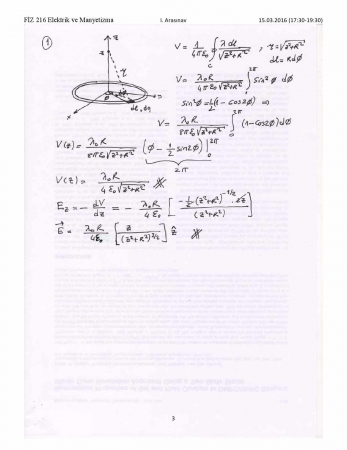 FİZ 216 Elektrik ve Manyetizma I. Arasınav 15.03.2016 (17:30-19:30)
① z
V = 1/(4πε₀) ∮_C λ dl / √(z²+R²) , r = √(z²+R²)
dl = R dø
V = λ₀R / (4πε₀√(z²+R²)) ∫₀^{2π} sin²ø dø
sin²ø = ½(1 - cos2ø) ⇒
x ø dl, dq
V = λ₀R / (8πε₀√(z²+R²)) ∫₀^{2π} (1 - cos2ø) dø
V(z) = λ₀R / (8πε₀√(z²+R²)) (ø - ½ sin2ø) |₀^{2π}
2π
V(z) = λ₀R / (4ε₀√(z²+R²))
E_z = - dV/dz = - λ₀R/(4ε₀) [ -½(z²+R²)^{-1/2} . 2z / (z²+R²) ]
E⃗ = λ₀R/(4ε₀) [ z / (z²+R²)^{3/2} ] ẑ
3